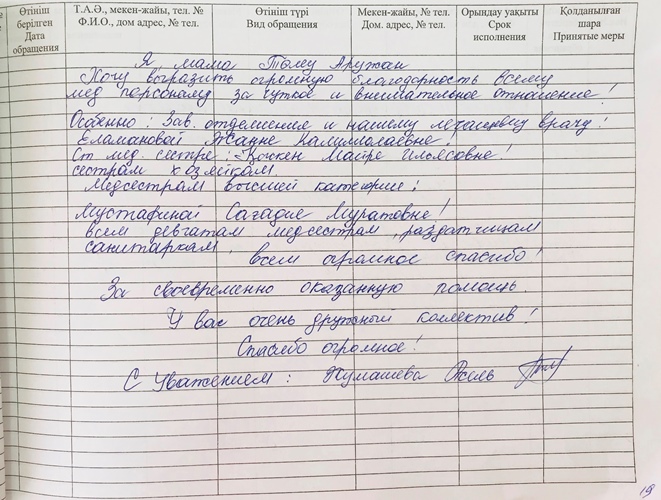 №
Өтініш берілген Дата обращения
Т.А.Ә., мекен-жайы, тел. № Ф.И.О., дом адрес, № тел.
Өтініш түрі Вид обращения
Мекен-жайы, № тел. Дом. адрес, № тел.
Орындау уақыты Срок исполнения
Қолданылған шара Принятые меры
Я, мама Толеу Аружан
Хочу выразить огромную благодарность всему
мед персоналу за чуткое и внимательное отношение!
Особенно: Зав. отделением и нашему лечащему врачу!
Еламановой Жанне Калимолаевне!
Ст мед. сестре: Кочкен Майре Ильясовне!
сестрам хозяйкам.
Медсестрам высшей категории:
Мустафиной Сагадие Муратовне!
всем девчатам медсестрам, раздатчицам
санитаркам, всем огромное спасибо!
За своевременно оказанную помощь.
У вас очень дружный коллектив!
Спасибо огромное!
С Уважением: Кумашева
19